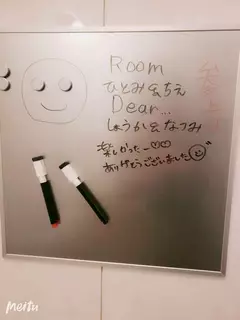 Room
ひとみ&ちえ
Dear...
しょうか&なつみ
楽しかったー♡♡
ありがとうございました
meitu